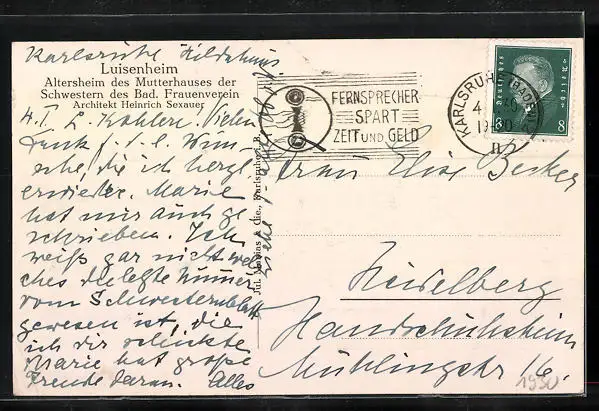 Karlsruhe Hildahaus
Luisenheim
Altersheim des Mutterhauses der
Schwestern des Bad. Frauenverein
Architekt Heinrich Sexauer
4. I. L. Vielen
Dank f. d. l. Wün-
sche, die ich herzl.
erwidere. Marie
hat mir auch ge-
schrieben. Ich
weiß gar nicht wel-
ches die letzte Numer
vom Schwesternblatt
gewesen ist, die
ich dir schickte
Marie hat große
Freude daran. Alles
Jul. & Cie., Karlsruhe i. B.
FERNSPRECHER
SPART
ZEIT UND GELD
KARLSRUHE (BADEN)
4. 1. 30
19-20
II
Deutsches Reich
8 8
Frau Elise Becker
Heidelberg
Handschuhsheim
Mühlingstr 16.
1930